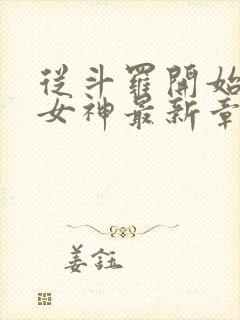 從斗羅開始
女神最新章
姜鈺